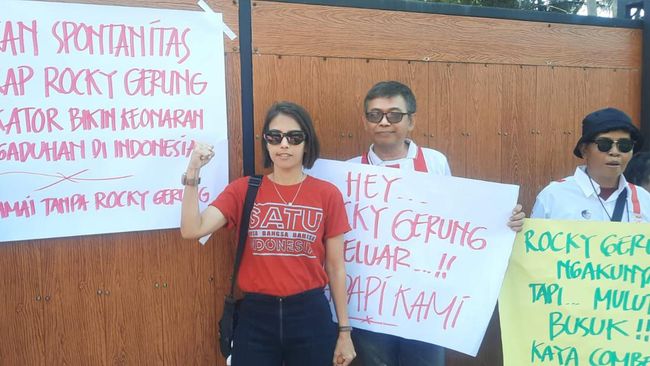 AN SPONTANITAS
AP ROCKY GERUNG
KATOR BIKIN KEONARAN
GADUHAN DI INDONESIA
AMAI TANPA ROCKY GERUNG
SATU
BANGSA
INDONESIA
HEY...
CKY GERUNG
ELUAR...!!
DAPI KAMI
ROCKY GERU
NGAKUNYA
TAPI... MULUT
BUSUK!!!
KATA COMBE